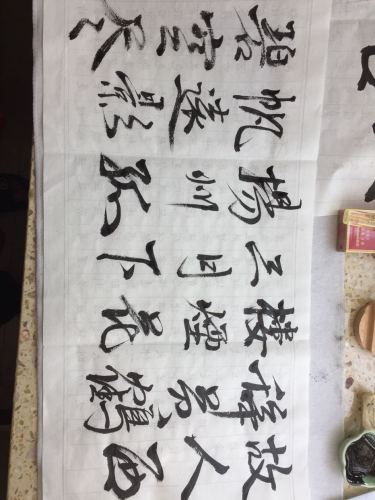 故人西
辞黄鶴
樓煙花
三月下
揚州孤
帆遠影
碧空尽